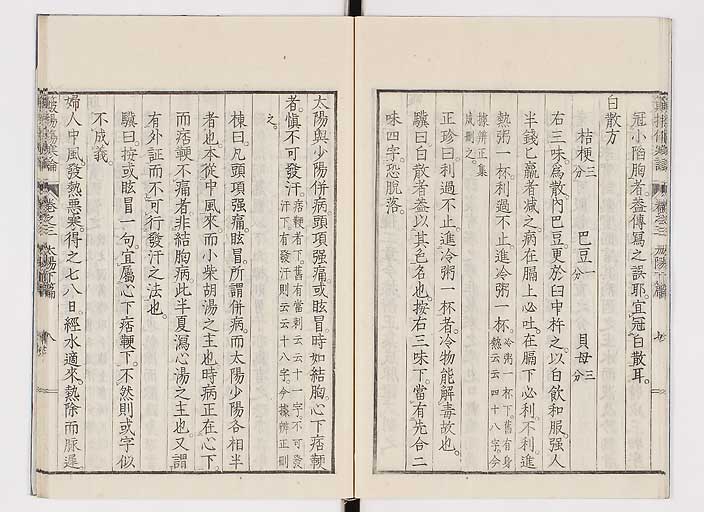 冠小陷胸者。蓋傳寫之誤耶。宜冠白散耳。
白散方
桔梗三分　巴豆一分　貝母三分
右三味。爲散。內巴豆。更於臼中杵之。以白飮和服。強人
半錢匕。羸者減之。病在膈上必吐。在膈下必利。不利。進
熱粥一杯。利過不止。進冷粥一杯。冷粥一杯下。舊有身熱云云四十八字。今
據辨正集成刪之。
正珍曰。利過不止。進冷粥一杯者。冷物能解毒故也。
驥曰。白散者。蓋以其色名也。按右三味下。當有先合二
味四字。恐脫落。
太陽與少陽併病。頭項強痛。或眩冒。時如結胸。心下痞鞕
者。愼不可發汗。痞鞕者下。舊有當刺云云十一字。不可發汗下。有發汗則云云十八字。今據辨正刪
之。
棟曰。凡頭項強痛。眩冒。所謂併病。而太陽少陽各相半
者也。本從中風來。而小柴胡湯之主也。時病正在心下。
而痞鞕不痛者。非結胸病。此半夏瀉心湯之主也。又謂
有外証而不可行發汗之法也。
驥曰。按或眩冒一句。宜屬心下痞鞕下。不然則或字似
不成義。
婦人中風。發熱惡寒。得之七八日。經水適來。熱除而脈遲
卷之三 太陽下篇 八